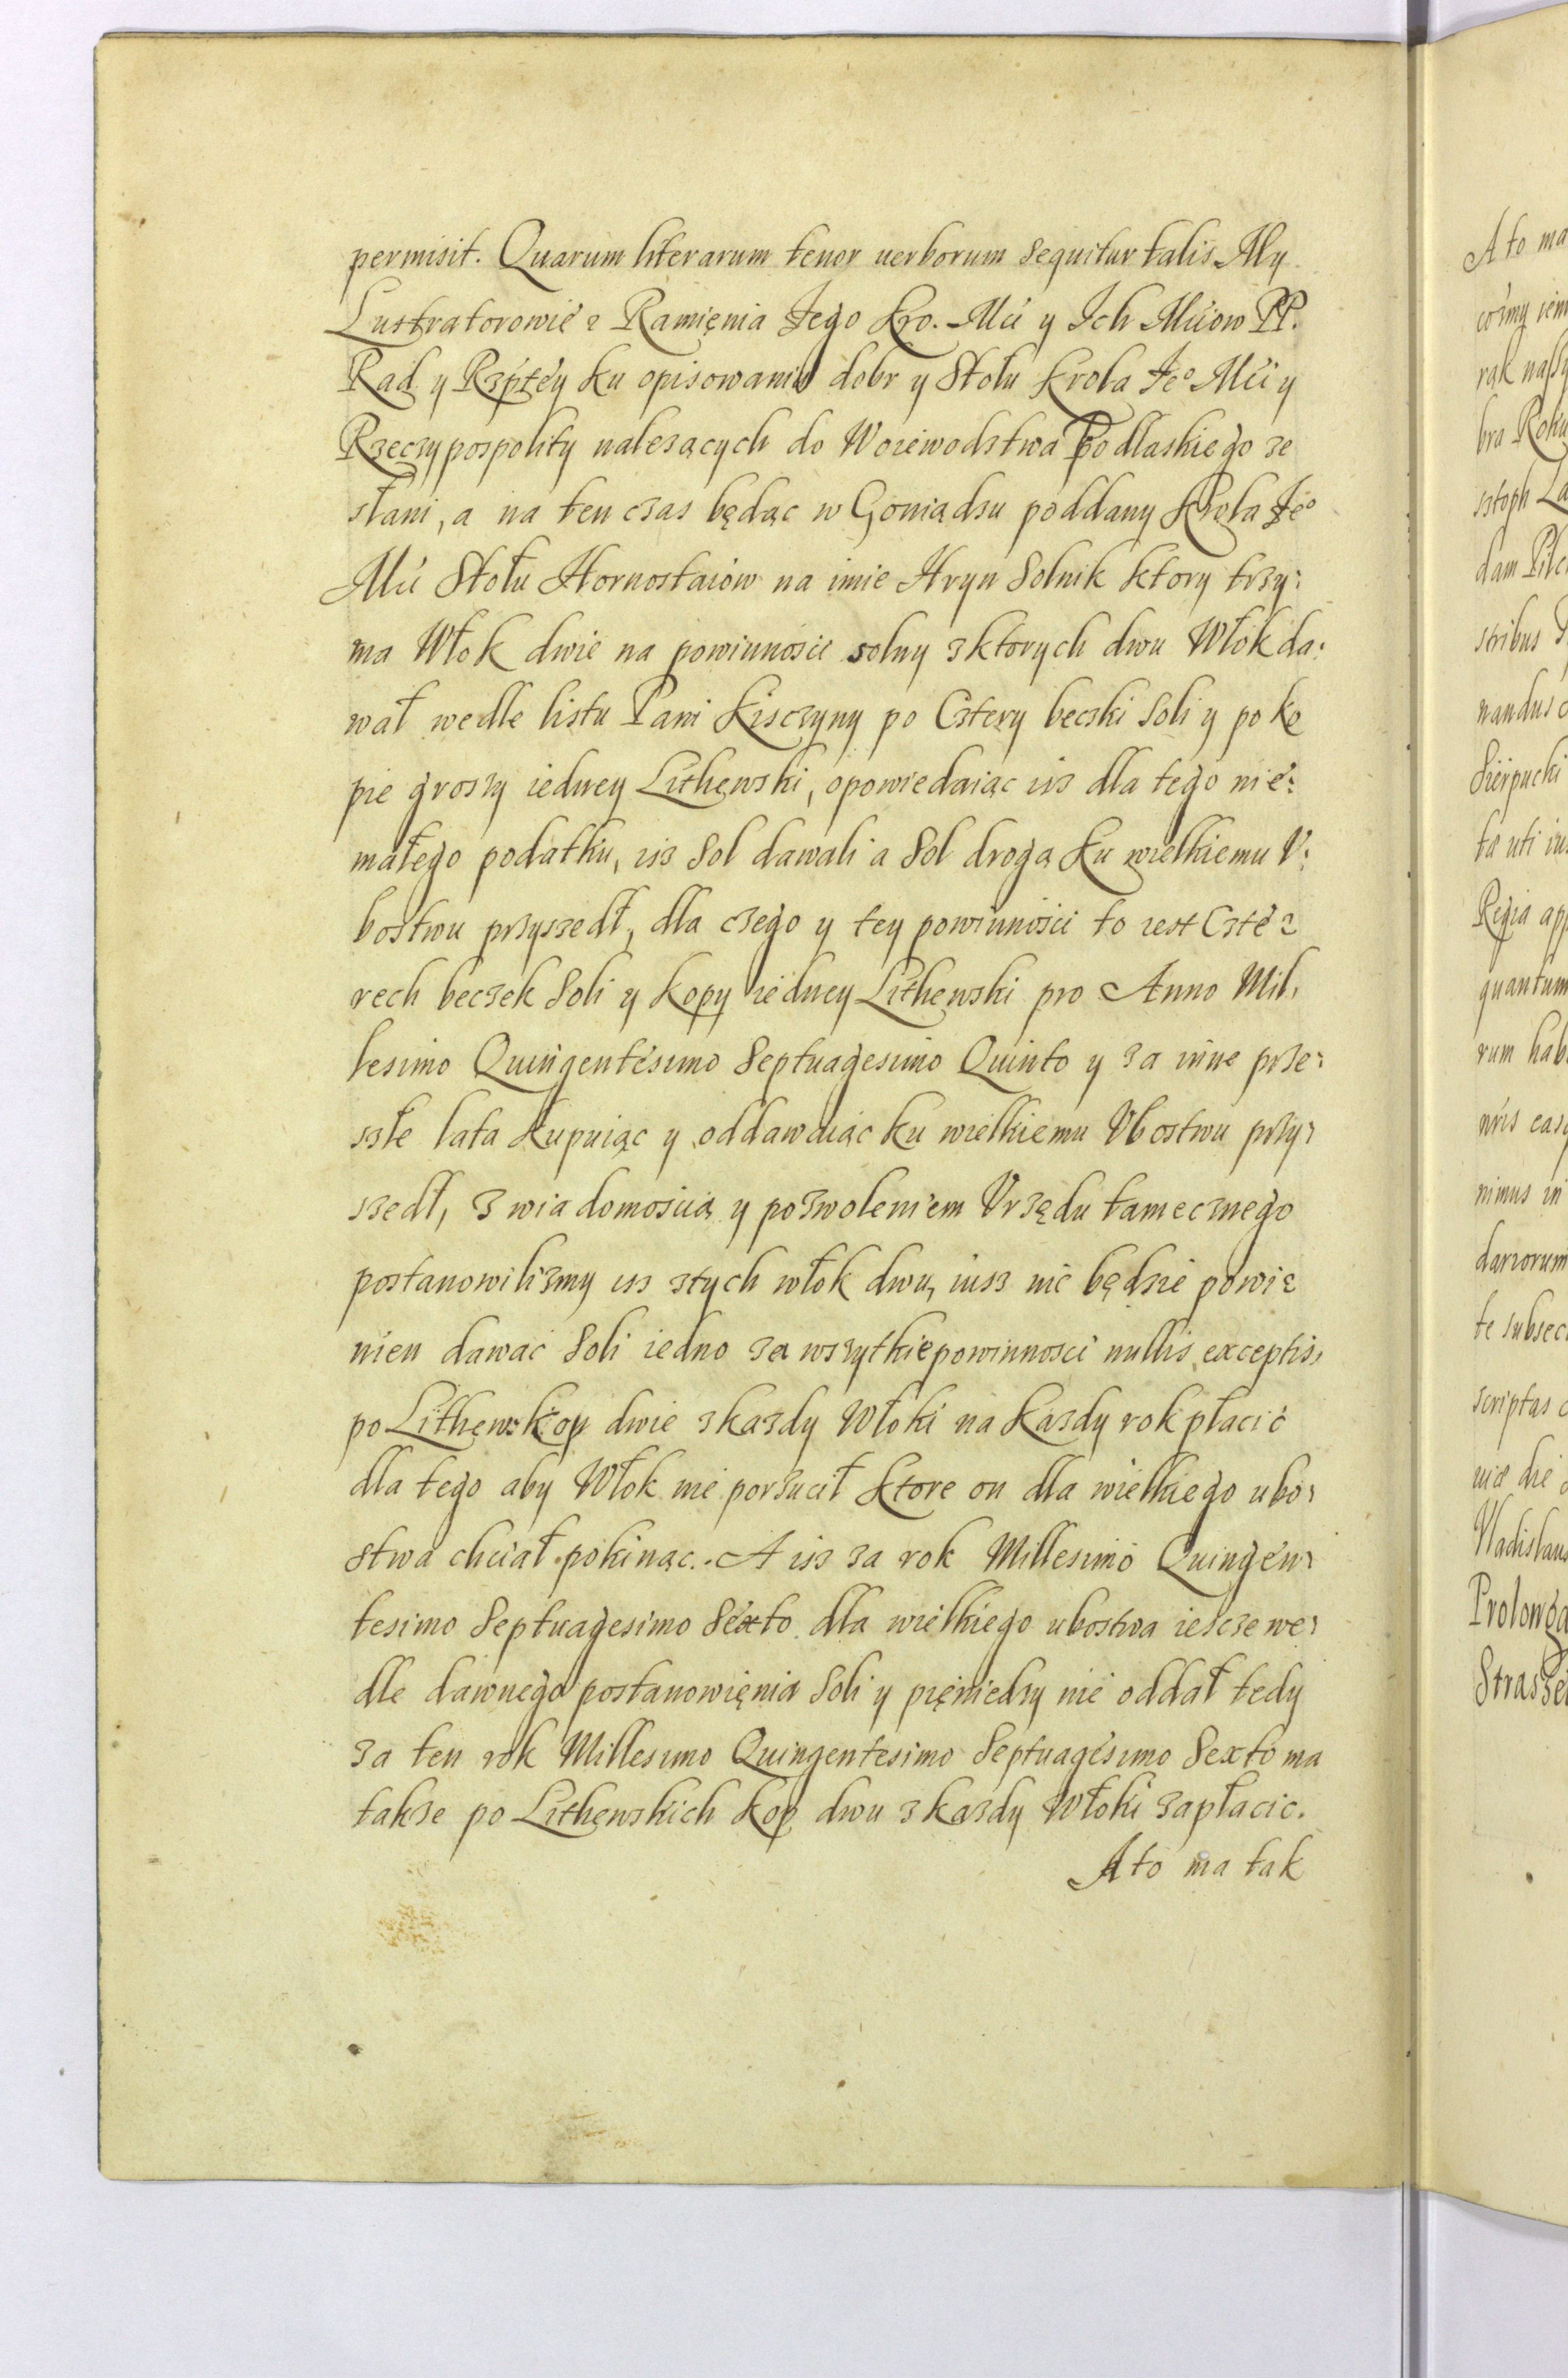 permisit. Quarum literarum tenor uerborum sequitur talis. My
Lustratorowie z Ramięnia Jego Kro. Mći y Ich Mćiow PP.
Rad y Rzptéy ku opisowaniu dobr y Stołu Krola Jeº Mći y
Rzeczypospolity nalezących do Woiewodztwa Podlaskiego ze
słani, a na ten czas będąc w Goniądzu poddany Krola Jeº
Mći Stołu Hornostaiow na imie Hryn Solnik ktory trzy:
ma Włok dwie na powinnosci solny z ktorych dwu Włok da:
wał wedle listu Pani Kisczyny po Cztery beczki Soli y po ko
pie groszy iedney Lithewski, opowiedaiąc isz dla tego nie:
małego podatku, isz Sol dawali a Sol droga ku wielkiemu V:
bostwu przyszedł, dla czego y tey powinnosci to iest Czte:
rech beczek Soli y kopy iedney Lithewski pro Anno Mil,
lesimo Quingentesimo Septuagesimo Quinto y za inne prze:
szłe lata kupuiąc y oddawaiąc ku wielkiemu Vbostwu przy:
szedł, z wiadomoscią y pozwoleniem Vrzędu tamecznego
postanowilismy isz ztych włok dwu, iusz nie będzie powi:
nien dawać Soli iedno za wszytkie powinnosci nullis exceptis,
po Lithews: kop dwie z kazdy Włoki na kazdy rok płacić
dla tego aby Włok nie porzucił ktore on dla wielkiego ubo:
stwa chciał pokinąc. A isz za rok Millesimo Quingen:
tesimo Septuagesimo Sexto dla wielkiego ubostwa iescze we:
dle dawnego postanowięnia Soli y pięniedzy nie oddał tedy
za ten rok Millesimo Quingentesimo Septuagesimo Sexto ma
takze po Lithewskich kop dwu z kazdy Włoki zapłacic.
A to ma tak
A to ma
cosmy iem
rąk naszy
bra Roku
sztoph La
dam Pilc
stribus
nandus c
Sierpuchi
ta uti iu
Regia app
quantum
rum hab
nris eas
nimus in
dariorum
te subsec
scriptas
nia die
Vladislaus
Prolonga
Strasze